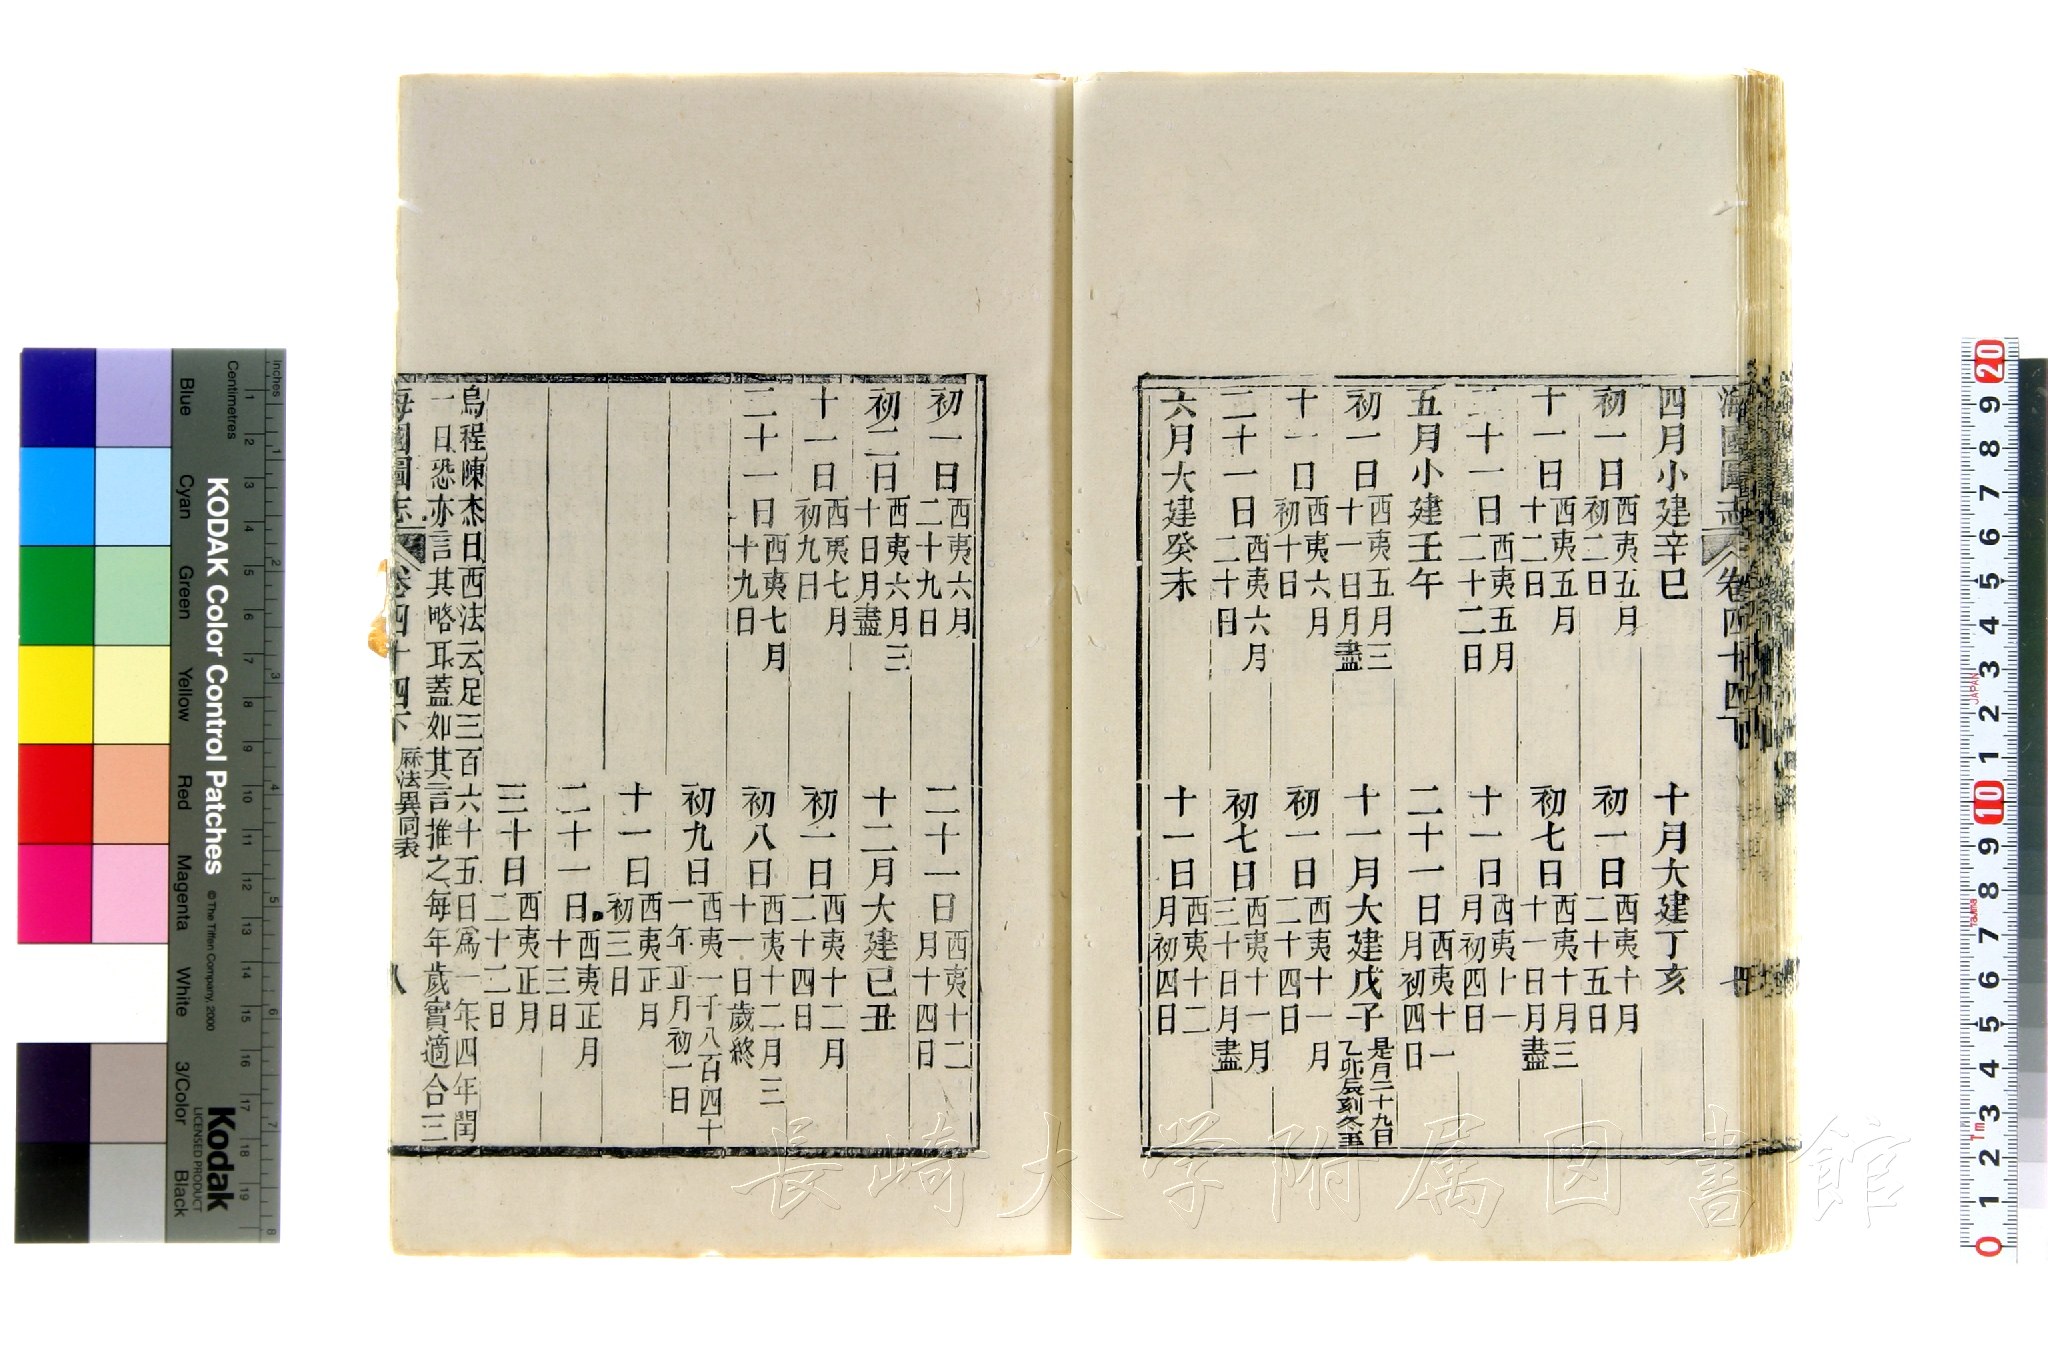 海國圖志 卷四十四下
四月小建辛巳
初一日西夷五月初二日
十一日西夷五月十二日
二十一日西夷五月二十二日
五月小建壬午
初一日西夷五月三十一日月盡
十一日西夷六月初十日
二十一日西夷六月二十日
六月大建癸未
十月大建丁亥
初一日西夷十月二十五日
初七日西夷十月三十一日月盡
十一日西夷十一月初四日
二十一日西夷十一月初四日
十一月大建戊子是月二十九日乙卯辰刻冬至
初一日西夷十一月二十四日
初七日西夷十一月三十日月盡
十一日西夷十二月初四日
初一日西夷六月二十九日
初二日西夷六月三十日月盡
十一日西夷七月初九日
二十一日西夷七月十九日
二十一日西夷十二月十四日
十二月大建己丑
初一日西夷十二月二十四日
初八日西夷十二月三十一日歲終
初九日西夷一千八百四十一年正月初一日
十一日西夷正月初三日
二十一日西夷正月十三日
三十日西夷正月二十二日
烏程陳杰日西法云足三百六十五日爲一年四年閏
一日恐亦言其略耳蓋如其言推之每年歲實適合三
海國圖志 卷四十四下 厤法異同表 八
長崎大学附属図書館
KODAK Color Control Patches
© The Tiffen Company, 2000
Kodak
LICENSED PRODUCT
Inches
Centimetres
Blue
Cyan
Green
Yellow
Red
Magenta
White
3/Color
Black
1 2 3 4 5 6 7 8 9 10 11 12 13 14 15 16 17 18 19
1 2 3 4 5 6 7 8
0 1 2 3 4 5 6 7 8 9 10 1 2 3 4 5 6 7 8 9 20
JAPAN